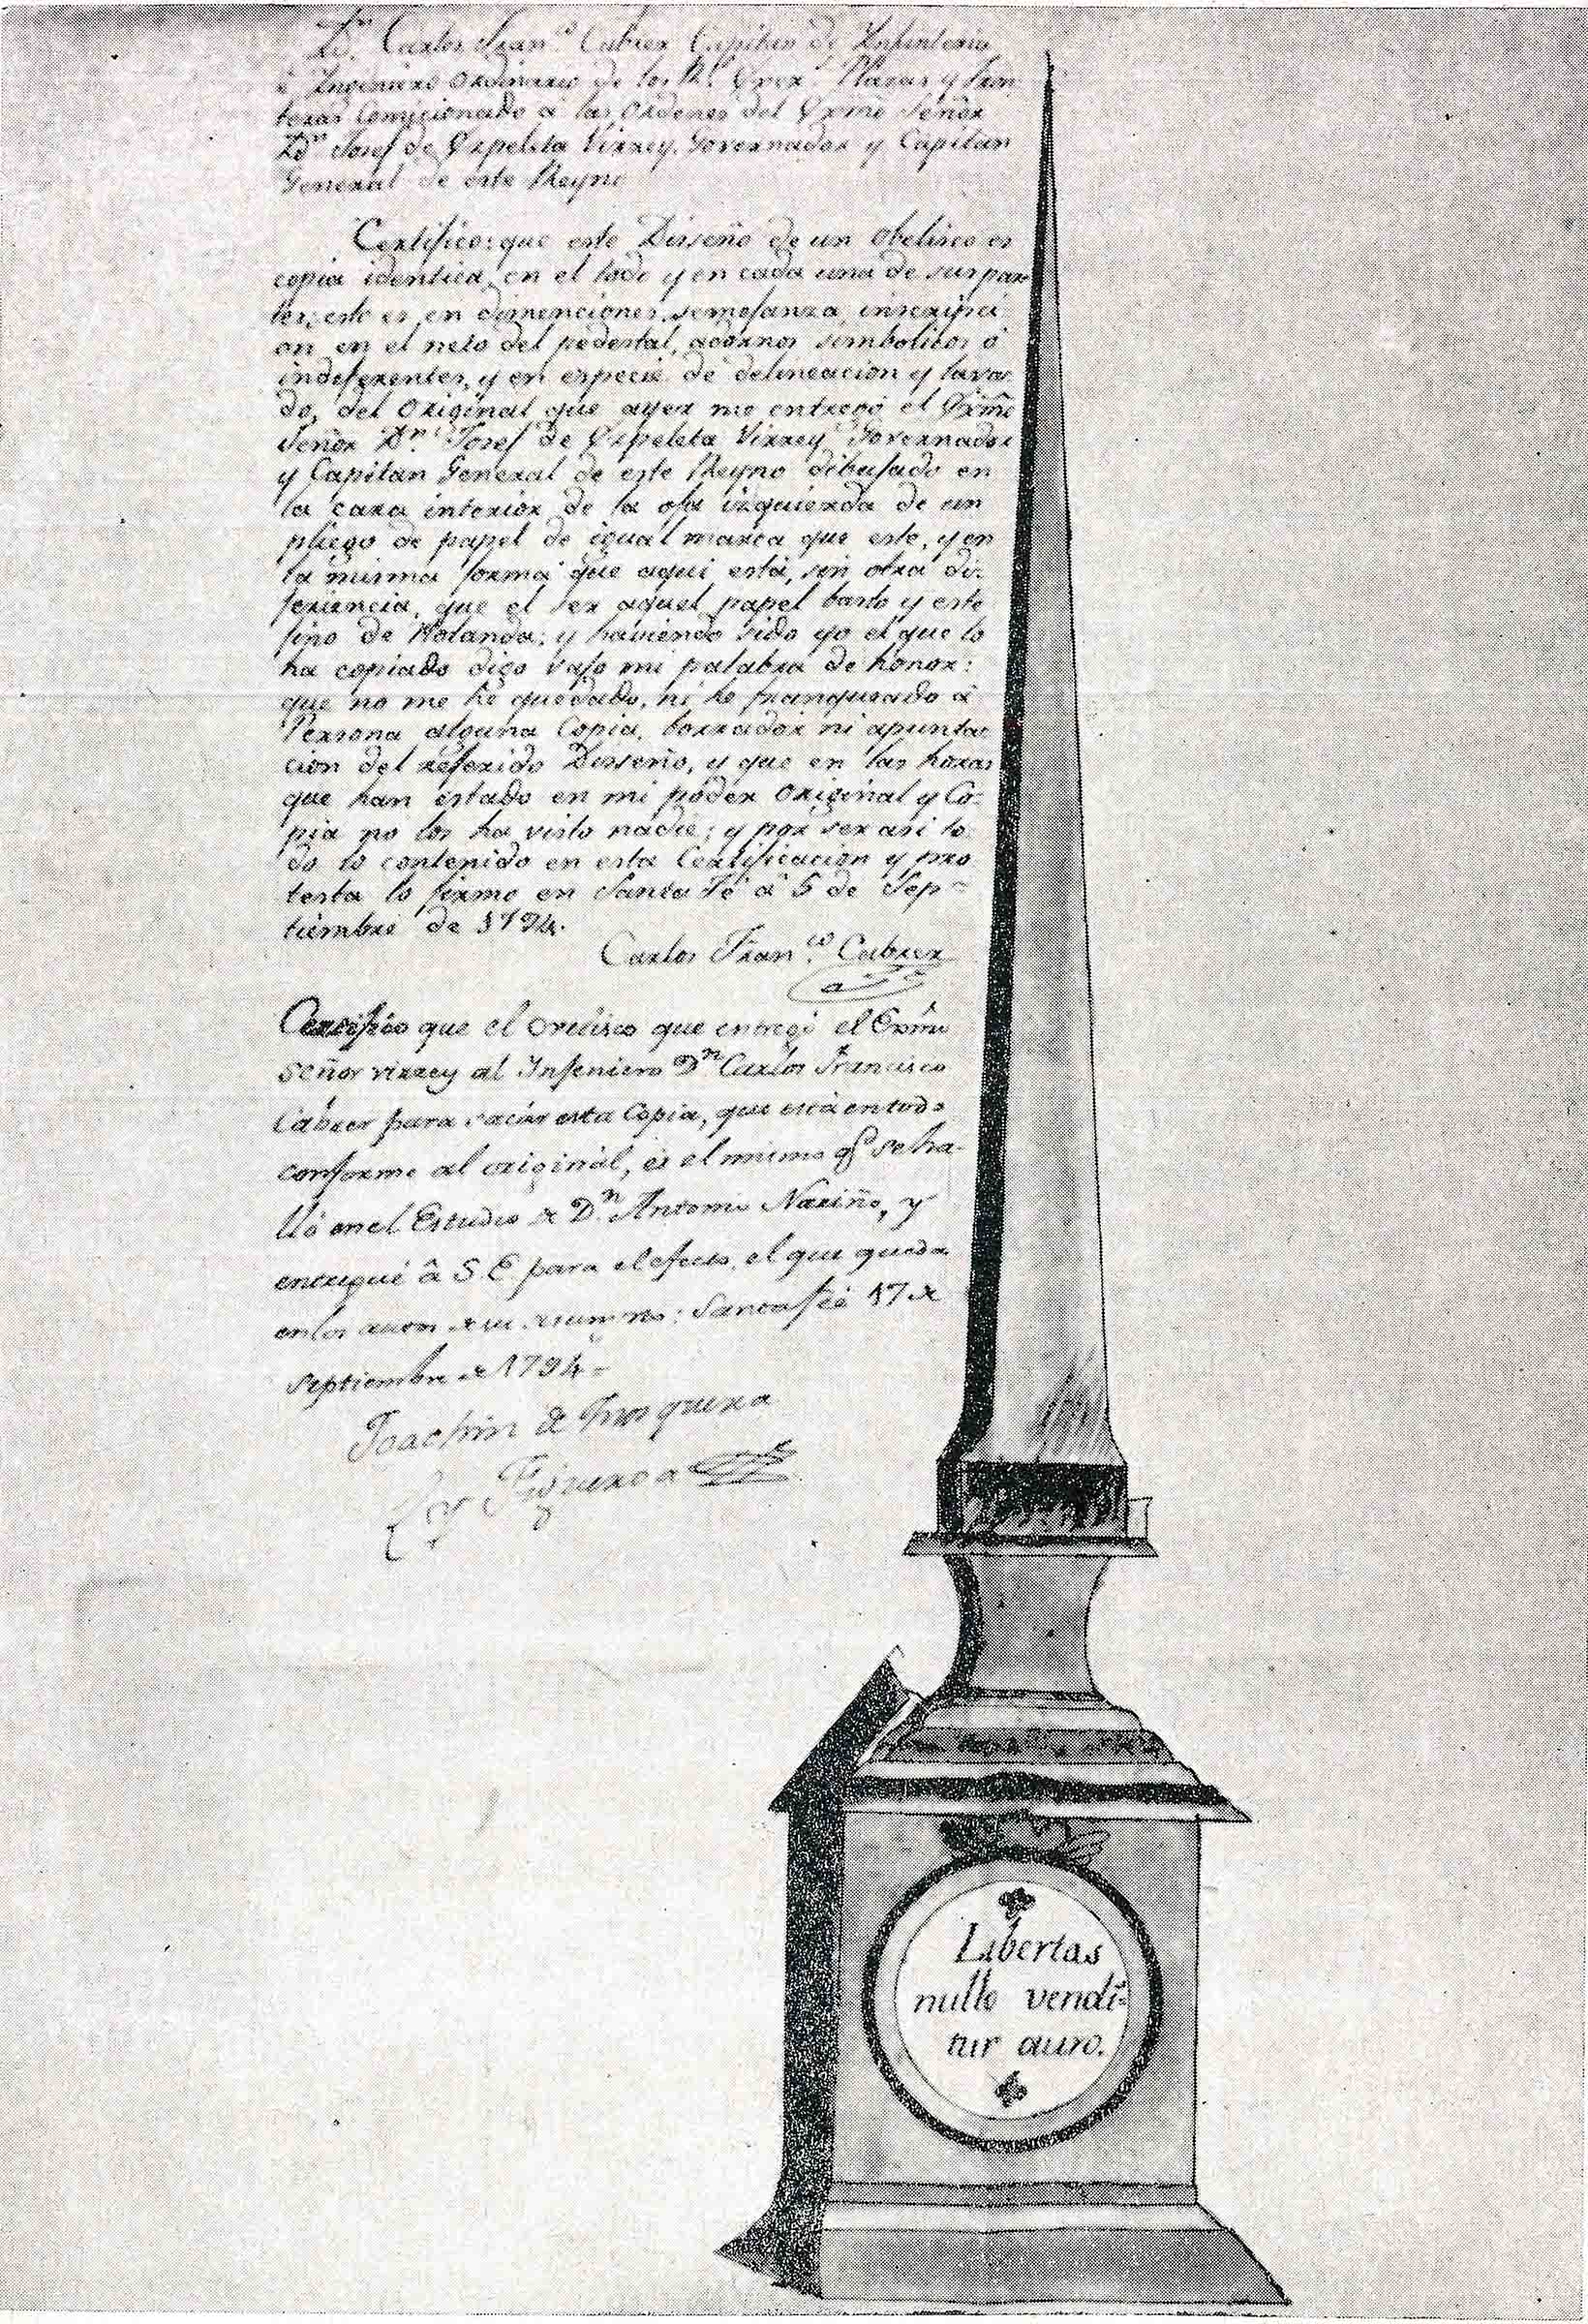 Dn. Carlos Franco. Cabrer Capitan de Ynfanteria
è Yngeniero Ordinario de los Rs. Exers. Plazas y fron
teras Comicionado â las Ordenes del Exmo Señor
Dn. Josef de Ezpeleta Virrey, Governador y Capitan
General de este Reyno
Certifico: que este Disseño de un obelisco es
copia identica, en el todo y en cada una de sus par
tes; esto es, en dimenciones, semejanza, inscripci
on en el neto del pedestal, adornos simbolicos ó
indeferentes, y en especie de delineacion y lava
do, del Original que ayer me entregó el Exmo
Señor Dn. Josef de Ezpeleta Virrey Governador
y Capitan General de este Reyno dibujado en
la cara interior de la oja izquierda de un
pliego de papel de igual marca que este, y en
la misma forma que aqui está, sin otra di-
feriencia, que el ser aquel papel basto y este
fino de Holanda; y haviendo sido yo el que lo
ha copiado digo vajo mi palabra de honor:
que no me hé quedado, ni he franqueado â
Persona alguna Copia, borrador ni apunta
cion del referido Disseño, y que en las horas
que han estado en mi poder Original y Co-
pia no los ha visto nadie; y por ser asi to
do lo contenido en esta Certificacion y pro
testa lo firmo en Santa Fé â 5 de Sep-
tiembre de 1794.
Carlos Franco. Cabrer
Certifico que el Ovelisco que entregó el Exmo
señor virrey al Injeniero Dn Carlos Francisco
Cabrer para sacar esta Copia, que está en todo
conforme al original, es el mismo qe se ha-
lló en el Estudio de Dn. Antonio Nariño, y
entregué â S. E. para el efecto, el que queda
en los autos de su : Santafeé 17 de
septiembre de 1794-
Joachin de Mosquera
y Figueroa
Libertas
nullo vendi-
tur auro.